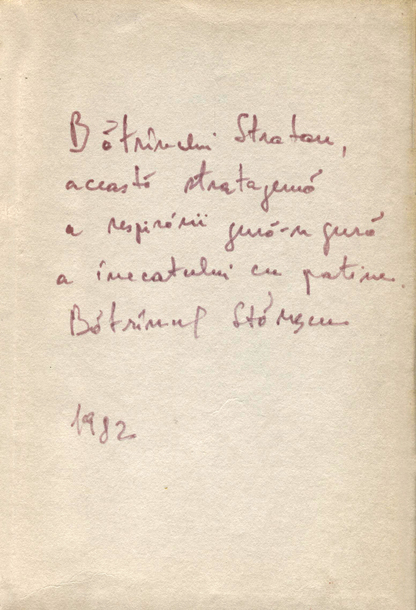 Bătrînului Stratan,
această stratagemă
a respirării gură-n gură
a înecatului cu patine.
Bătrînul Stănescu
1982